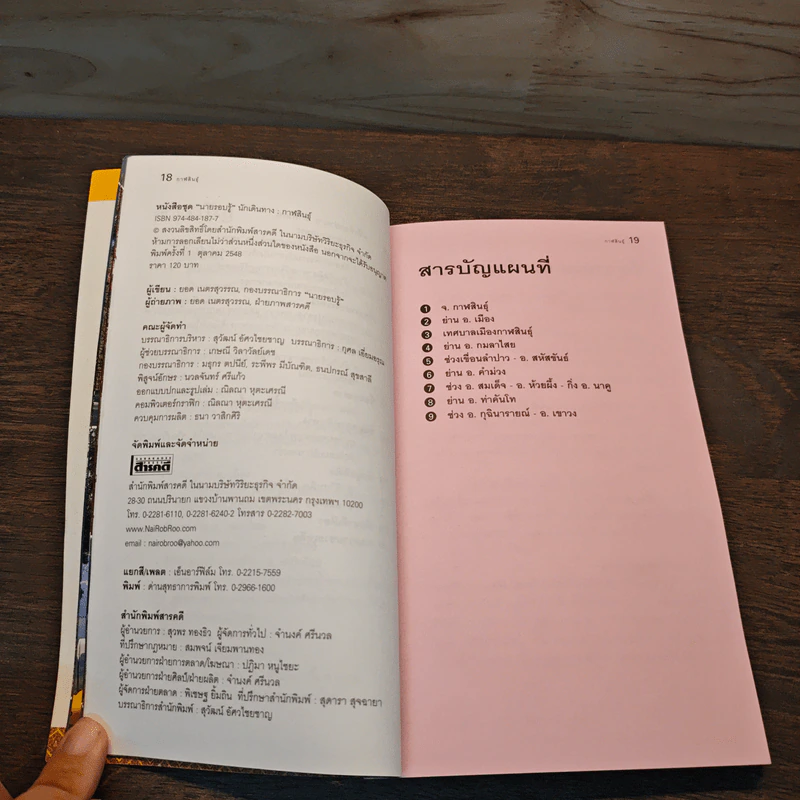 18 กาฬสินธุ์
หนังสือชุด "นายรอบรู้" นักเดินทาง : กาฬสินธุ์
ISBN 974-484-187-7
© สงวนลิขสิทธิ์โดยสำนักพิมพ์สารคดี ในนามบริษัทวิริยะธุรกิจ จำกัด
ห้ามการลอกเลียนไม่ว่าส่วนหนึ่งส่วนใดของหนังสือ นอกจากจะได้รับอนุญาต
พิมพ์ครั้งที่ 1 ตุลาคม 2548
ราคา 120 บาท
ผู้เขียน : ยอด เนตรสุวรรณ, กองบรรณาธิการ "นายรอบรู้"
ผู้ถ่ายภาพ : ยอด เนตรสุวรรณ, ฝ่ายภาพสารคดี
คณะผู้จัดทำ
บรรณาธิการบริหาร : สุวัฒน์ อัศวไชยชาญ บรรณาธิการ : กุศล เอี่ยมอรุณ
ผู้ช่วยบรรณาธิการ : เกษณี วิลาวัลย์เดช
กองบรรณาธิการ : มธุกร ตปนีย์, ระพีพร มีบัณฑิต, ธนปกรณ์ สุขสาลี
พิสูจน์อักษร : นวลจันทร์ ศรีแก้ว
ออกแบบปกและรูปเล่ม : ณิลณา หุตะเศรณี
คอมพิวเตอร์กราฟิก : ณิลณา หุตะเศรณี
ควบคุมการผลิต : ธนา วาสิกศิริ
จัดพิมพ์และจัดจำหน่าย
สารคดี
สำนักพิมพ์สารคดี ในนามบริษัทวิริยะธุรกิจ จำกัด
28-30 ถนนปรินายก แขวงบ้านพานถม เขตพระนคร กรุงเทพฯ 10200
โทร. 0-2281-6110, 0-2281-6240-2 โทรสาร 0-2282-7003
www.NaiRobRoo.com
email : nairobroo@yahoo.com
แยกสี/เพลต : เอ็นอาร์ฟิล์ม โทร. 0-2215-7559
พิมพ์ : ด่านสุทธาการพิมพ์ โทร. 0-2966-1600
สำนักพิมพ์สารคดี
ผู้อำนวยการ : สุวพร ทองธิว ผู้จัดการทั่วไป : จำนงค์ ศรีนวล
ที่ปรึกษากฎหมาย : สมพจน์ เจียมพานทอง
ผู้อำนวยการฝ่ายการตลาด/โฆษณา : ปฏิมา หนูไชยะ
ผู้อำนวยการฝ่ายศิลป์/ฝ่ายผลิต : จำนงค์ ศรีนวล
ผู้จัดการฝ่ายตลาด : พิเชษฐ ยิ้มถิน ที่ปรึกษาสำนักพิมพ์ : สุดารา สุจฉายา
บรรณาธิการสำนักพิมพ์ : สุวัฒน์ อัศวไชยชาญ
กาฬสินธุ์ 19
สารบัญแผนที่
1 จ. กาฬสินธุ์
2 ย่าน อ. เมือง
3 เทศบาลเมืองกาฬสินธุ์
4 ย่าน อ. กมลาไสย
5 ช่วงเขื่อนลำปาว - อ. สหัสขันธ์
6 ย่าน อ. คำม่วง
7 ช่วง อ. สมเด็จ - อ. ห้วยผึ้ง - กิ่ง อ. นาคู
8 ย่าน อ. ท่าคันโท
9 ช่วง อ. กุฉินารายณ์ - อ. เขาวง